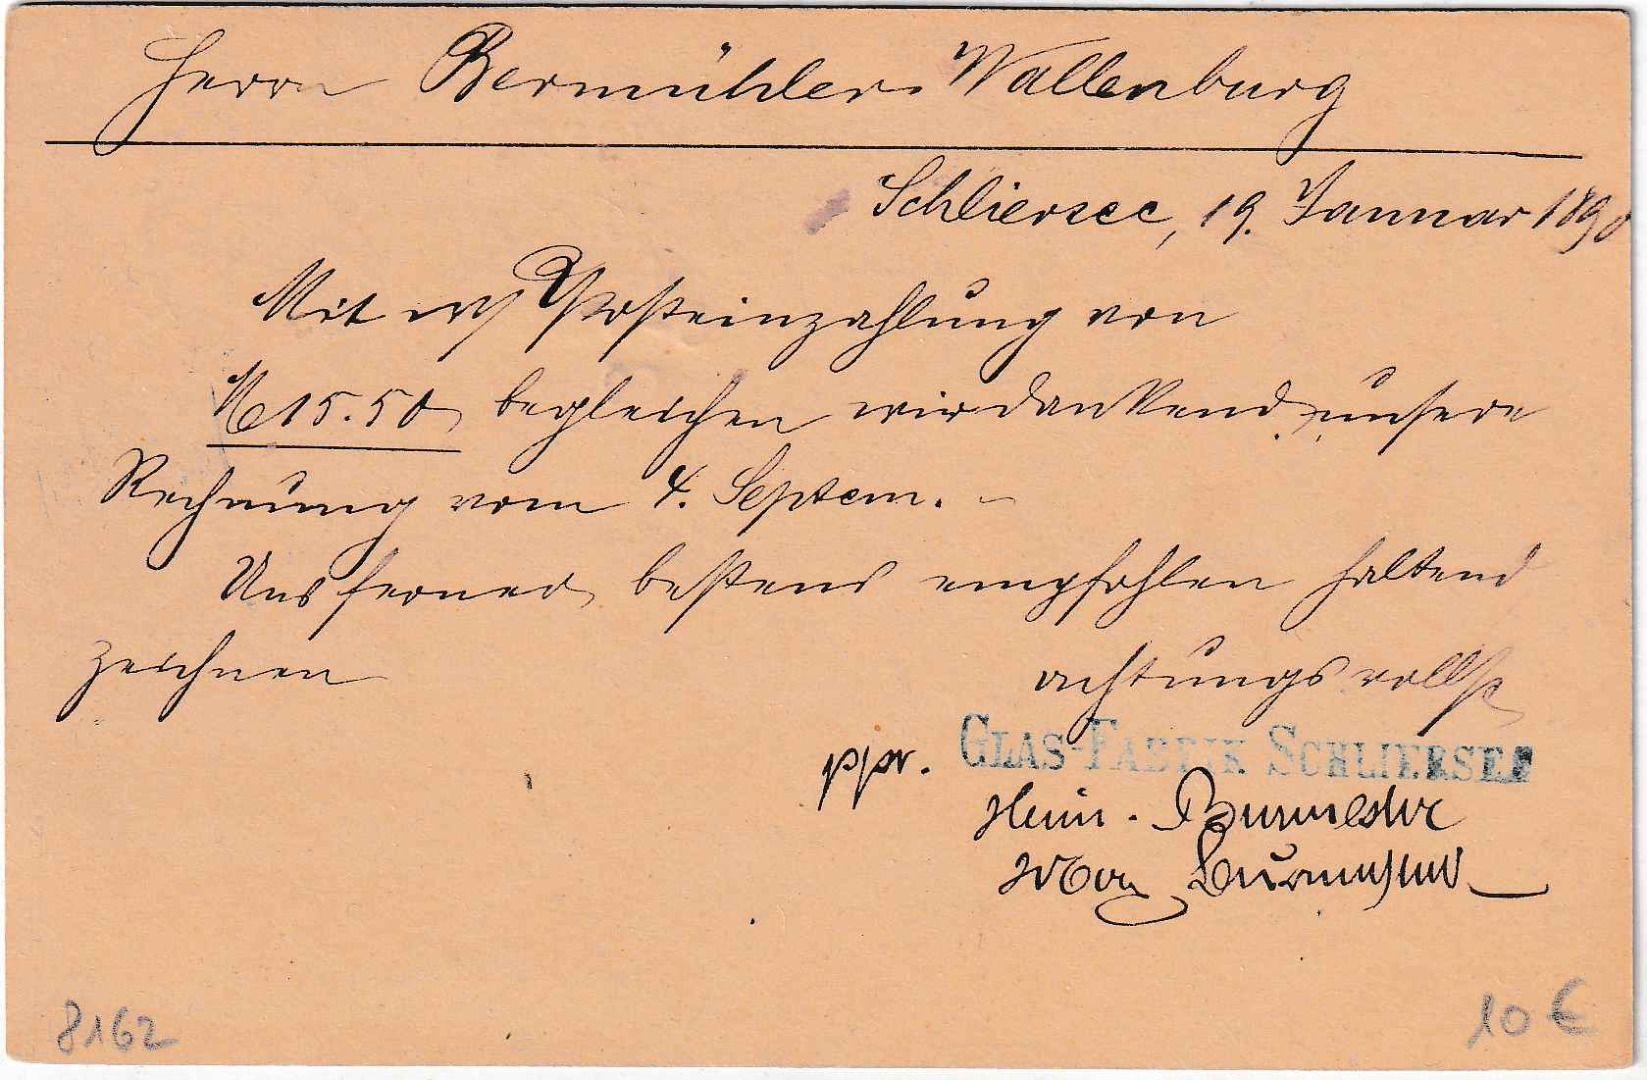 Herrn Bermühler. Wallenburg
Schliersee, 19. Januar 1890
Mit Posteinzahlung von
M 15.50 begleichen wir dankend unsere
Rechnung vom 4. Septem. –
Uns ferner bestens empfohlen haltend
zeichnen achtungsvollst
ppr. GLAS-FABRIK SCHLIERSEE
Heinr. Burmester
Max
8162
10 €